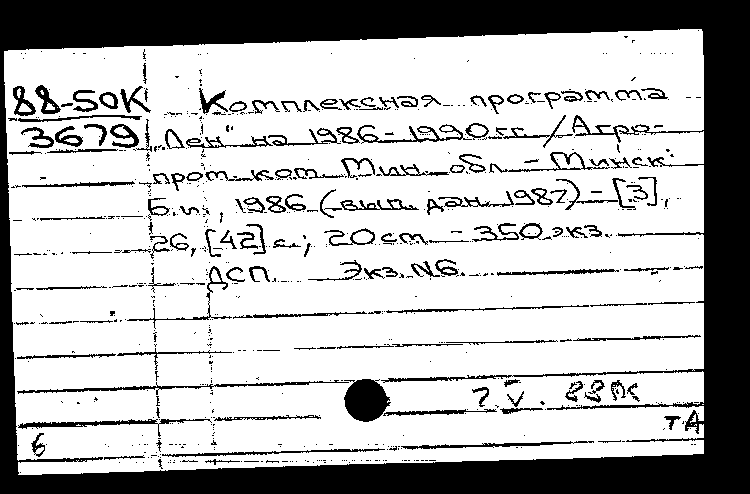 88-50К
3679
Комплексная программа
„Лен" на 1986-1990 гг. / Агро-
пром. ком. Мин. обл. - Минск:
Б.и., 1986 (вып. дан. 1987) - [3],
26, [42] с.; 20 см. - 350 экз.
ДСП. Экз. N6.
7 V. 88
6
ТА